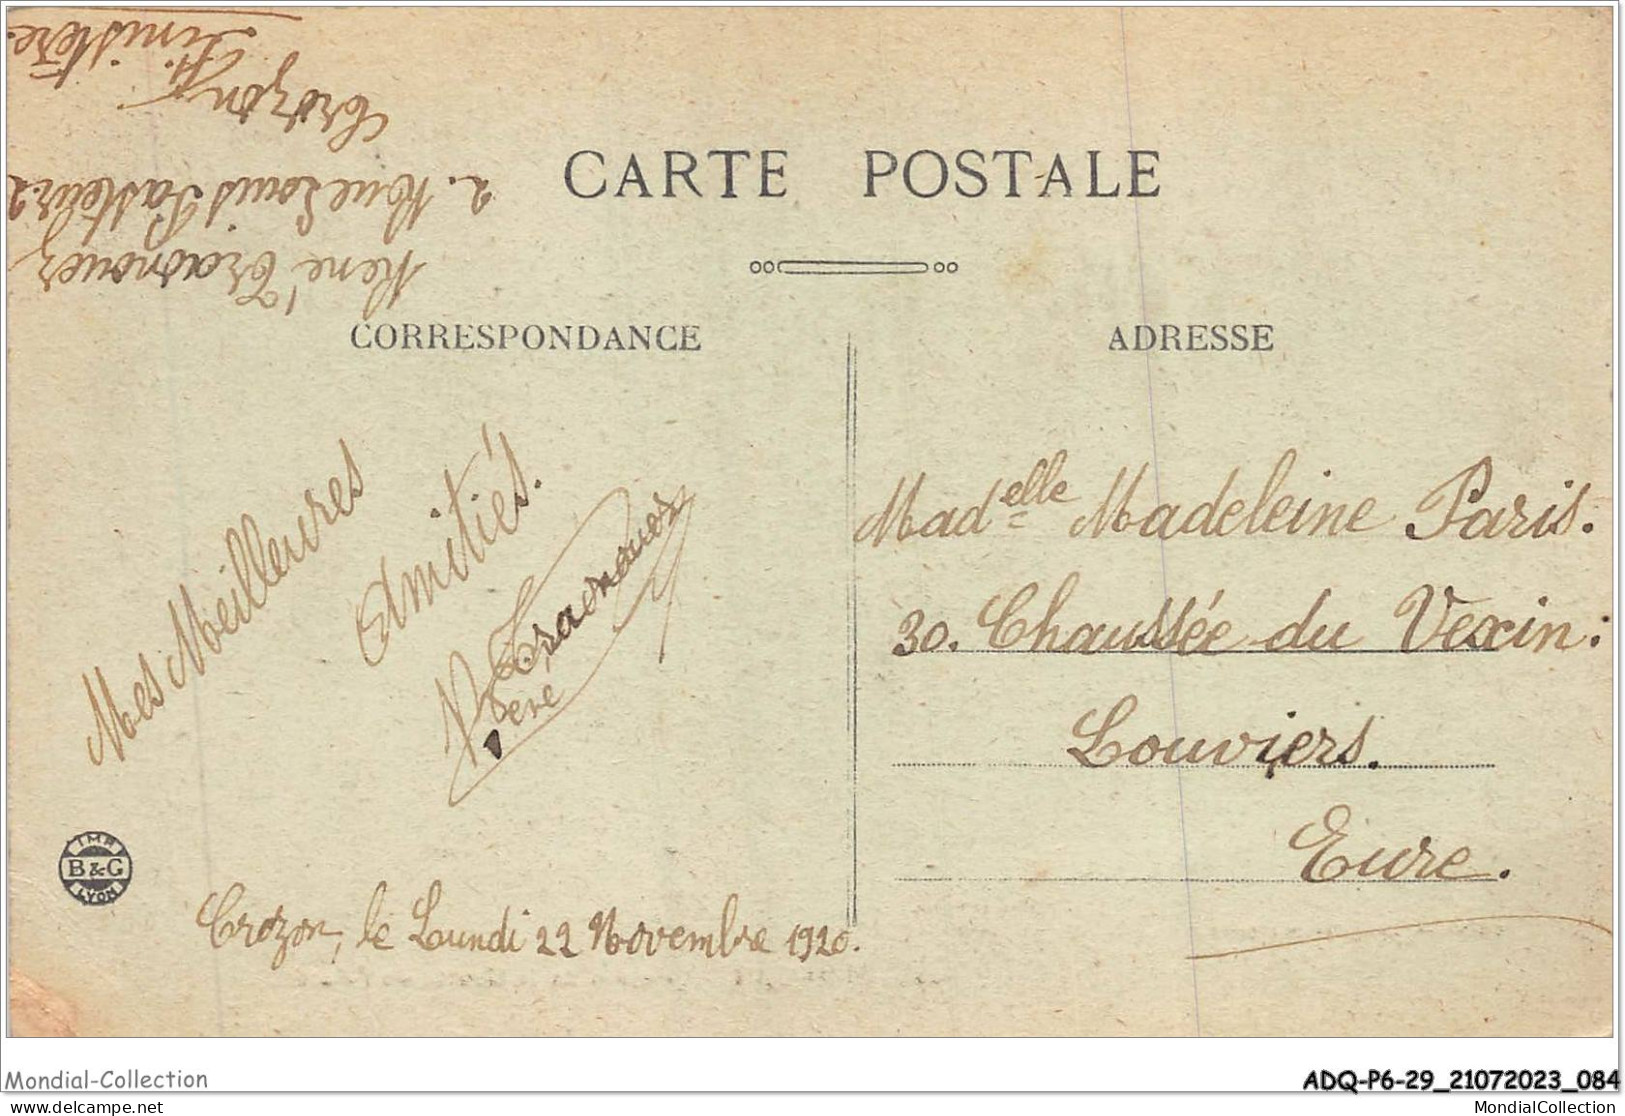 René Traonouez
2. Rue Louis Pasteur 2
Crozon
Finistère.
CARTE POSTALE
CORRESPONDANCE
ADRESSE
Mes Meilleures
Amitiés.
R. Traonouez
René
Madelle Madeleine Paris.
30. Chaussée du Vexin:
Louviers.
Eure.
IMP
B&G
LYON
Crozon, le Lundi 22 Novembre 1920.
Mondial-Collection
ADQ-P6-29_21072023_084
delcampe.net
MondialCollection